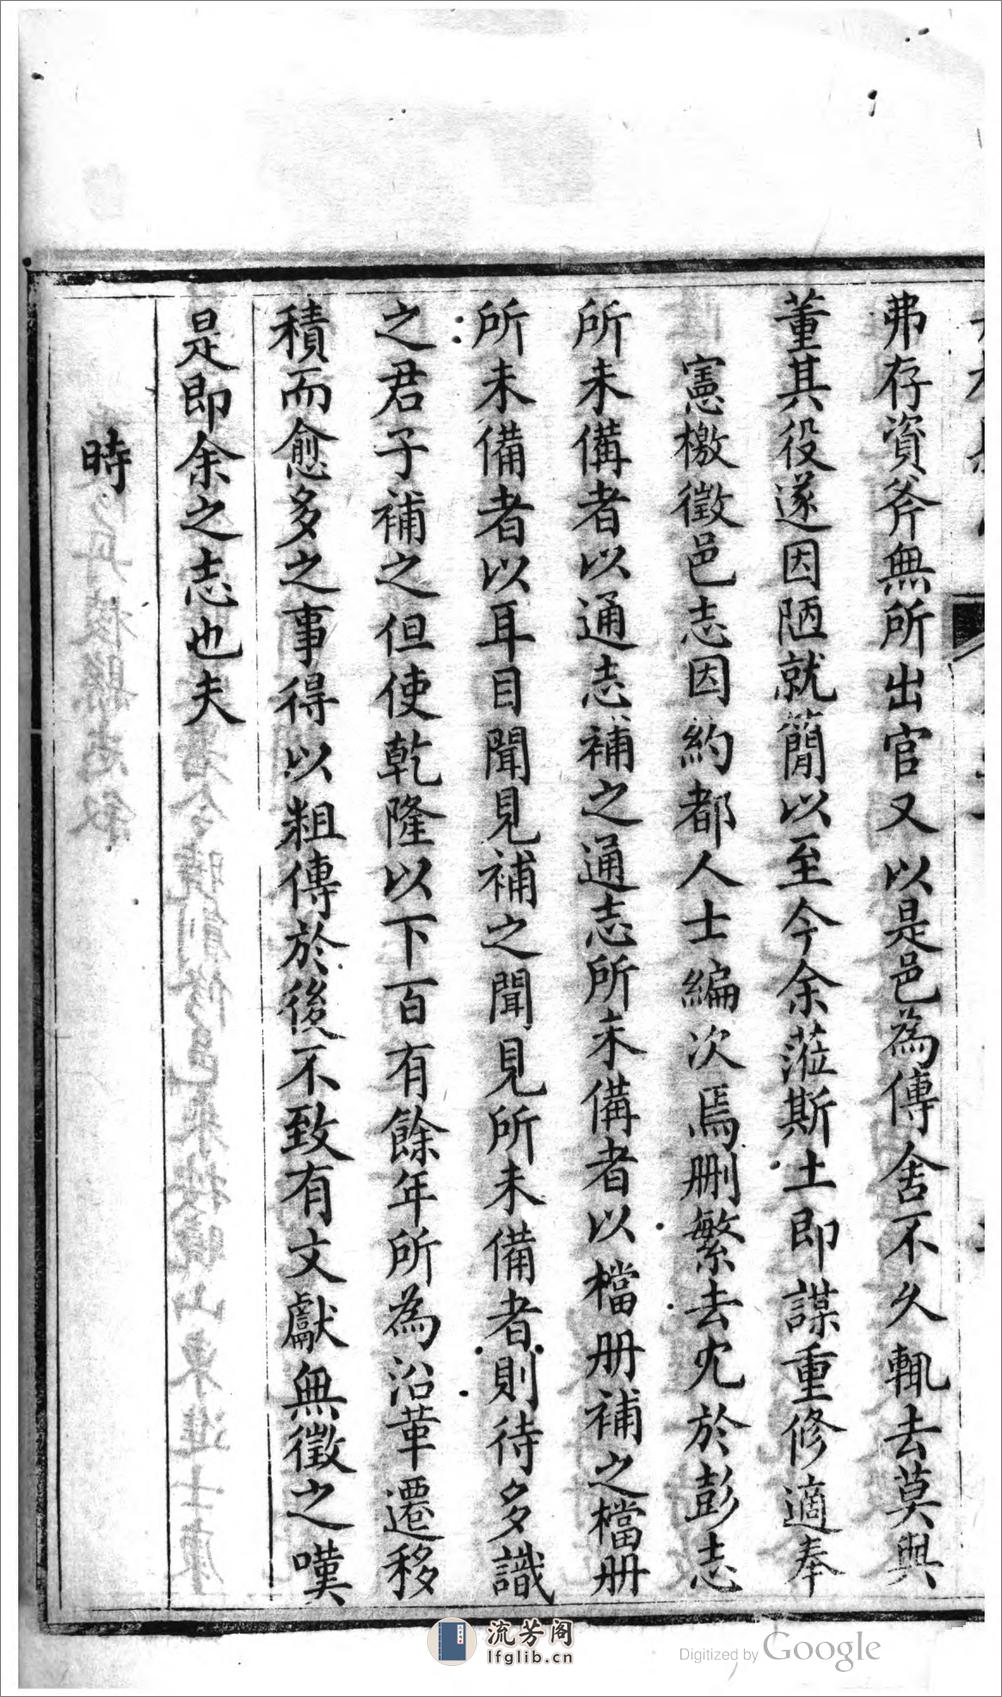 弗存資斧無所出官又以是邑為傳舍不久輒去莫與
董其役遂因陋就簡以至今余蒞斯土即謀重修適奉
憲檄徵邑志因約都人士編次焉刪繁去冗於彭志
所未備者以通志補之通志所未備者以檔册補之檔册
所未備者以耳目聞見補之聞見所未備者則待多識
之君子補之但使乾隆以下百有餘年所為沿革遷移
積而愈多之事得以粗傳於後不致有文獻無徵之嘆
是即余之志也夫
時
流芳阁
lfglib.cn
Digitized by Google